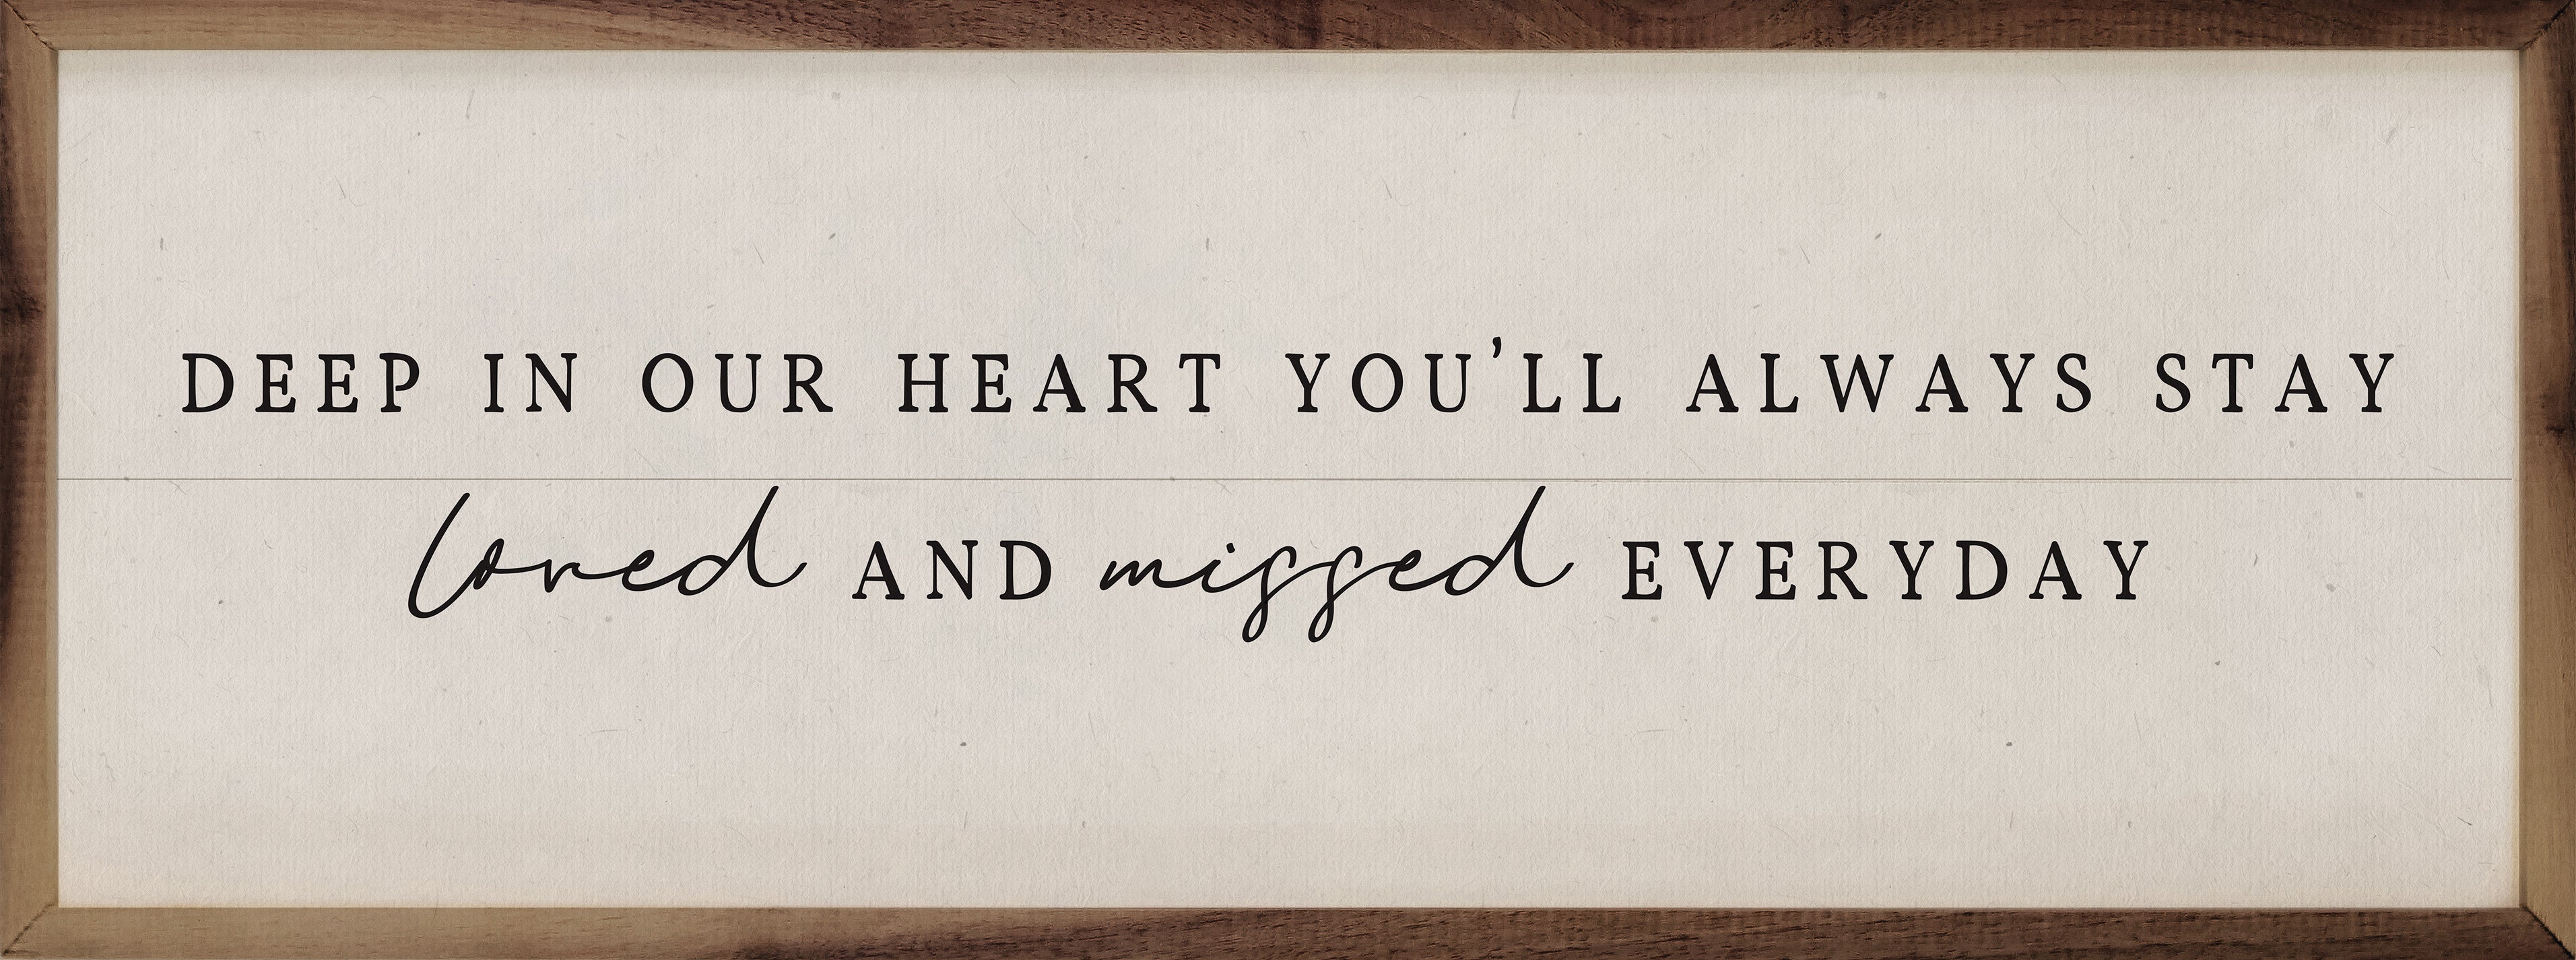 DEEP IN OUR HEART YOU'LL ALWAYS STAY
loved AND missed EVERYDAY